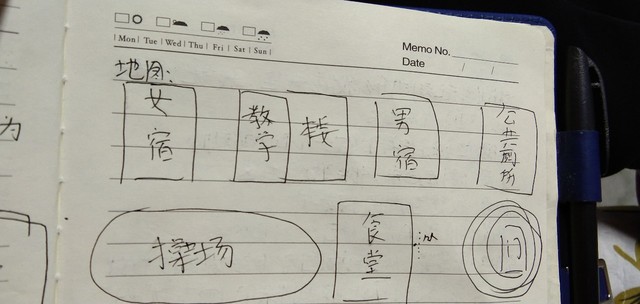 Mon Tue Wed Thu Fri Sat Sun
Memo No.
Date / /
地图:
女宿
教学楼
男宿
公共厕所
为
操场
食堂
门